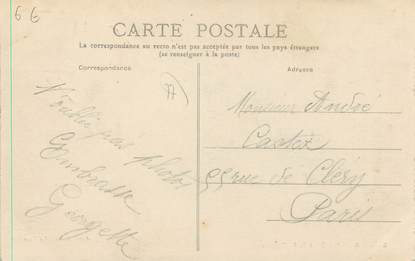 66
CARTE POSTALE
La correspondance au recto n'est pas acceptée par tous les pays étrangers
(se renseigner à la poste)
Correspondance
Adresse
N'oublie pas photos
Embrasse
Georgette
Monsieur André
Castex
55 rue de Cléry
Paris